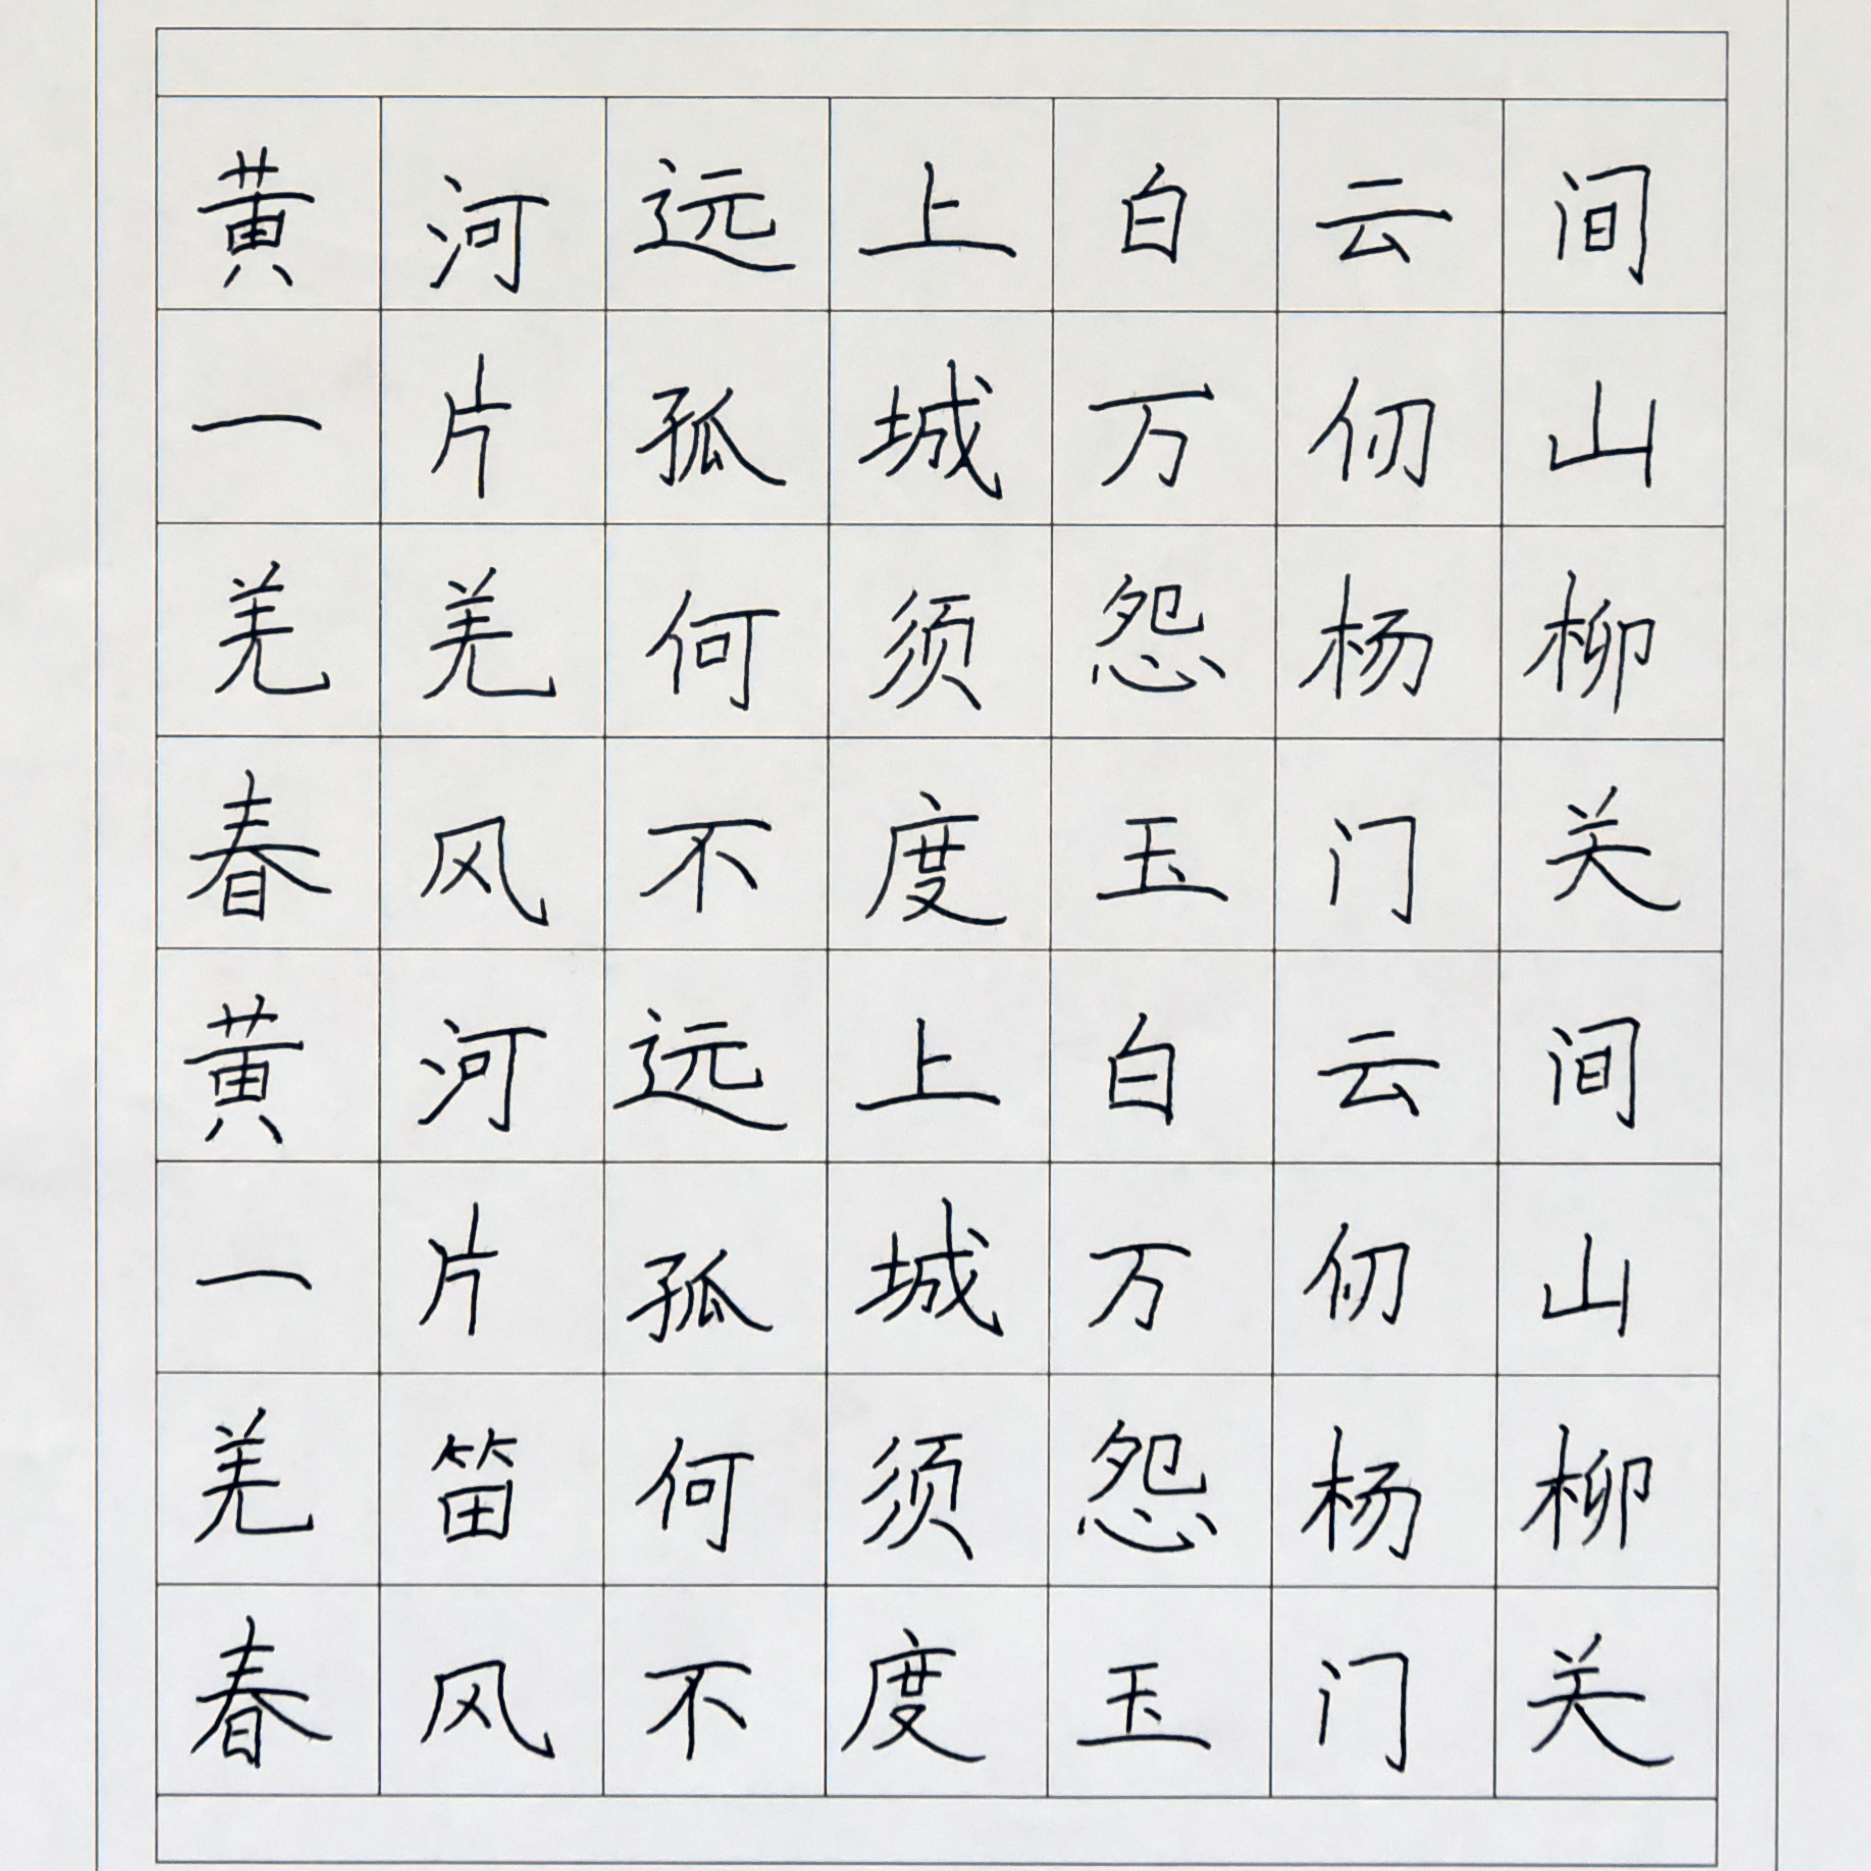 黄河远上白云间
一片孤城万仞山
羌羌何须怨杨柳
春风不度玉门关
黄河远上白云间
一片孤城万仞山
羌笛何须怨杨柳
春风不度玉门关